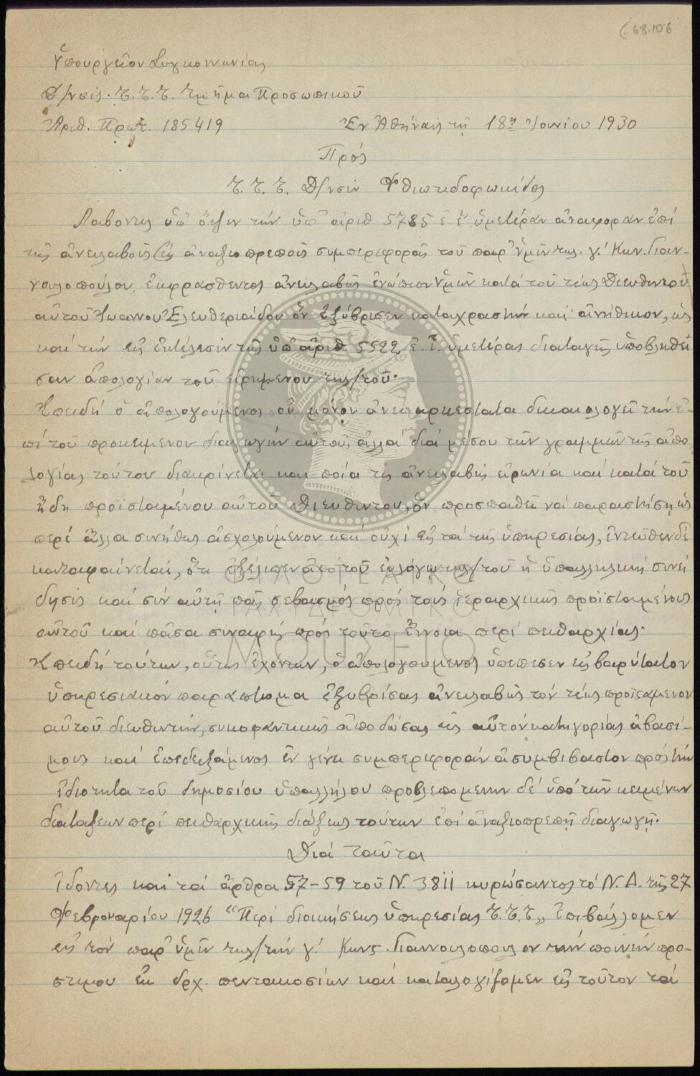 Ε68.106
Ὑπουργεῖον Συγκοινωνίας
Δ/νσις Τ.Τ.Τ. Τμῆμα Προσωπικοῦ
Ἀριθ. Πρωτ. 185419 Ἐν Ἀθήναις τῇ 18η Ἰουνίου 1930
Πρός
Τ.Τ.Τ. Δ/νσιν Φθιωτιδοφωκίδος
Λαβόντες ὑπ' ὄψιν τήν ὑπ' ἀριθ 5785 ἐ.ἔ. ὑμετέραν ἀναφοράν ἐπί
τῆς ἀναξιοπρεποῦς συμπεριφορᾶς τοῦ παρ' ὑμῖν τηλ. γ' Κων. Γιαν-
νουλοπούλου, ἐκφρασθέντος ἀνευλαβῶς ἐνώπιον ὑμῶν κατά τοῦ τέως Διευθυντοῦ
αὐτοῦ Ἰωάννου Ἐλευθεριάδου ὅν ἐξύβρισεν καταχραστήν καί ἀνήθικον, ὡς
καί τήν εἰς ἐκτέλεσιν τῆς ὑπ' ἀριθ 5522 ἐ.ἔ. ὑμετέρας διαταγῆς ὑποβληθεῖ
σαν ἀπολογίαν τοῦ εἰρημένου τηλ/τοῦ.
Ἐπειδή ὁ ἀπολογούμενος οὐ μόνον ἀνεπαρκέστατα δικαιολογεῖ τήν ἐ
πί τοῦ προκειμένου διαγωγήν αὐτοῦ, ἀλλά διά μέσου τῶν γραμμῶν τῆς ἀπο
λογίας τούτου διακρίνεται καί ποία τις ἀνευλαβής εἰρωνία καί κατά τοῦ
ἤδη προϊσταμένου αὐτοῦ Διευθυντοῦ, ὅν προσπαθεῖ νά παραστήσῃ ὡς
περί ἄλλα συνήθως ἀσχολούμενον καί οὐχί εἰς τά τῆς ὑπηρεσίας, ἐντεῦθεν δέ
καταφαίνεται, ὅτι ἐξέλιπεν ἀπό τοῦ ἐν λόγῳ τηλ/τοῦ ἡ ὑπαλληλική συνεί
δησις καί σύν αὐτῇ πᾶς σεβασμός πρός τούς ἱεραρχικῶς προϊσταμένους
αὐτοῦ καί πᾶσα συναφής πρός τοῦτο ἔννοια περί πειθαρχίας.
Ἐπειδή τούτων, οὕτως ἐχόντων, ὁ ἀπολογούμενος ὑπέπεσεν εἰς βαρύτατον
ὑπηρεσιακόν παράπτωμα ἐξυβρίσας ἀνευλαβῶς τόν τέως προϊστάμενον
αὐτοῦ διευθυντήν, συκοφαντικῶς ἀποδώσας εἰς αὐτόν κατηγορίας ἀβασί
μους καί ἐπεδειξάμενος ἐν γένει συμπεριφοράν ἀσυμβίβαστον πρός τήν
ἰδιότητα τοῦ δημοσίου ὑπαλλήλου προβλεπομένην δέ ὑπό τῶν κειμένων
διατάξεων περί πειθαρχικῆς διώξεως τούτων ἐπί ἀναξιοπρεπῇ διαγωγῇ.
Διά ταῦτα
Ἰδόντες καί τά ἄρθρα 57-59 τοῦ Ν. 3811 κυρώσαντος τό Ν.Δ. τῆς 27
Φεβρουαρίου 1926 "Περί διοικήσεως ὑπηρεσίας Τ.Τ.Τ." Ἐπιβάλλομεν
εἰς τόν παρ' ὑμῖν τηλ/τήν γ' Κων. Γιαννουλόπουλον τήν ποινήν προ-
στίμου ἐκ δρχ. πεντακοσίων καί καταλογίζομεν εἰς τοῦτον τά
ΦΙΛΟΤΕΛΙΚΟ
ΤΑΧΥΔΡΟΜΙΚΟ
ΜΟΥΣΕΙΟ